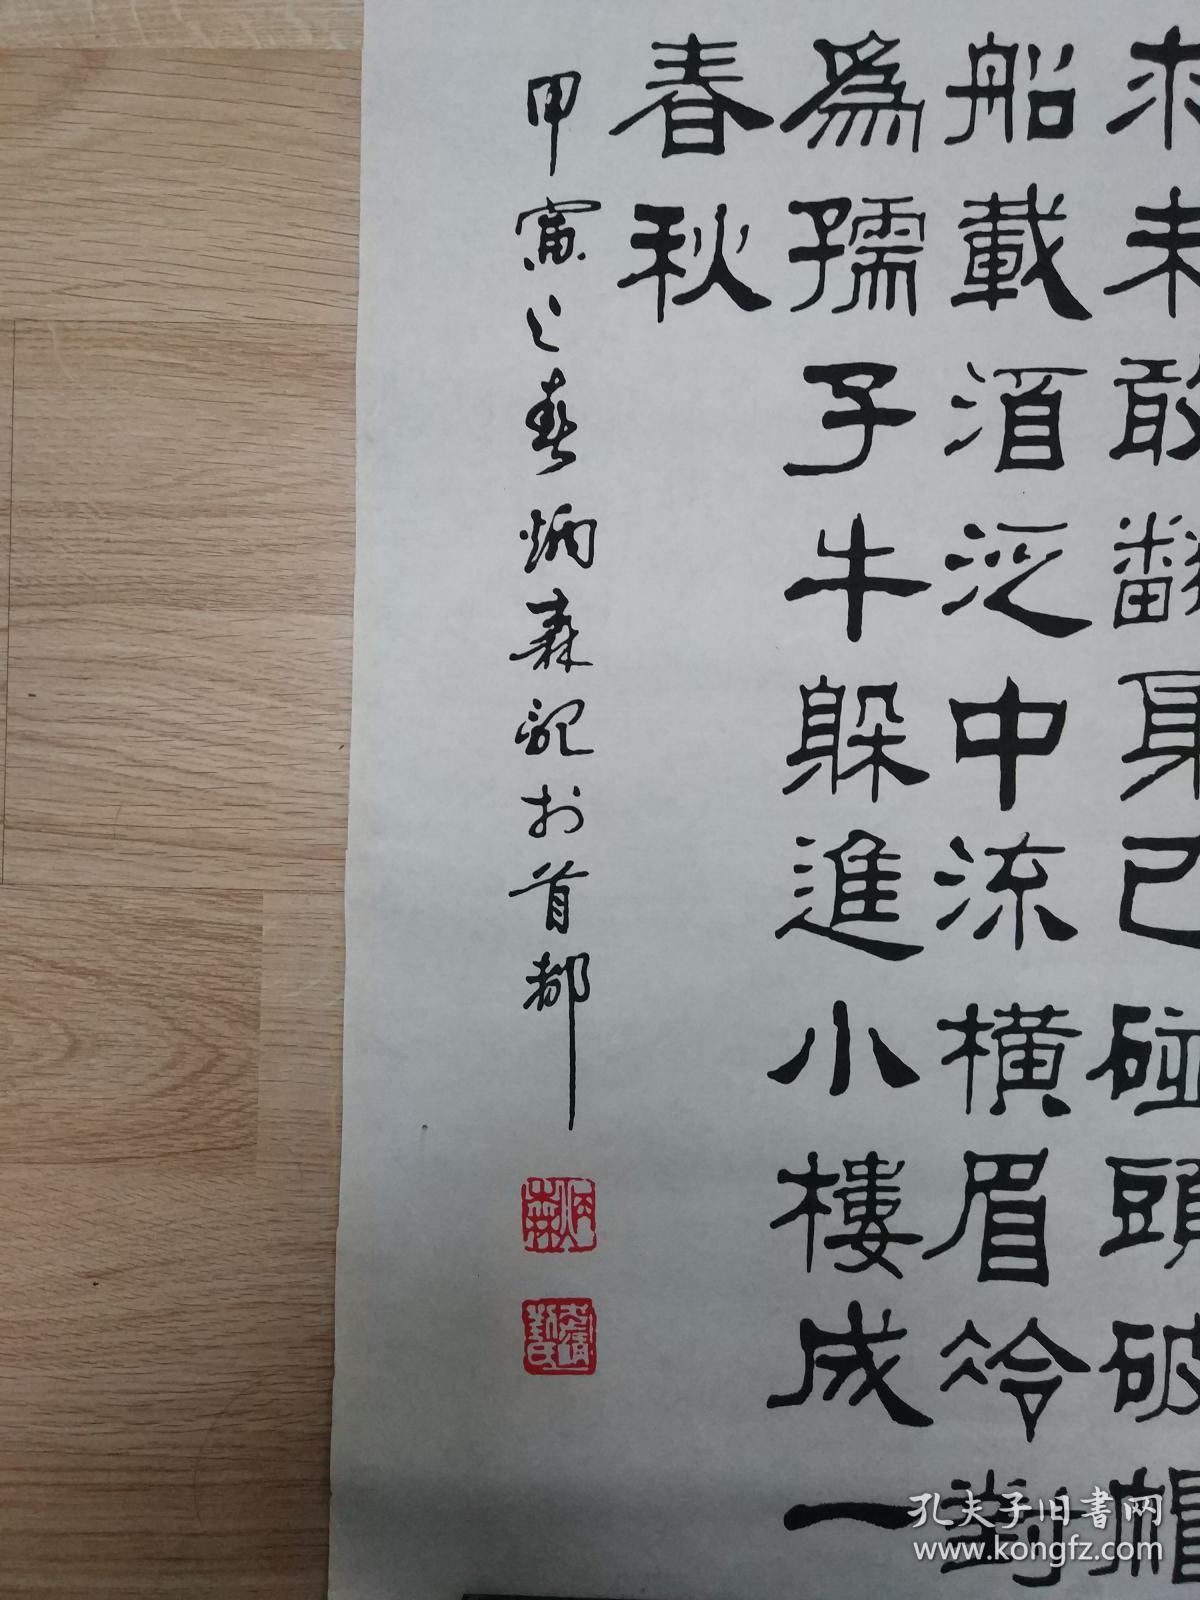 求未敢翻身已碰頭破帽
船載酒泛中流橫眉冷對
爲孺子牛躲進小樓成一
春秋
甲寅之春炳森記於首都
炳森
孔夫子旧書网
www.kongfz.com